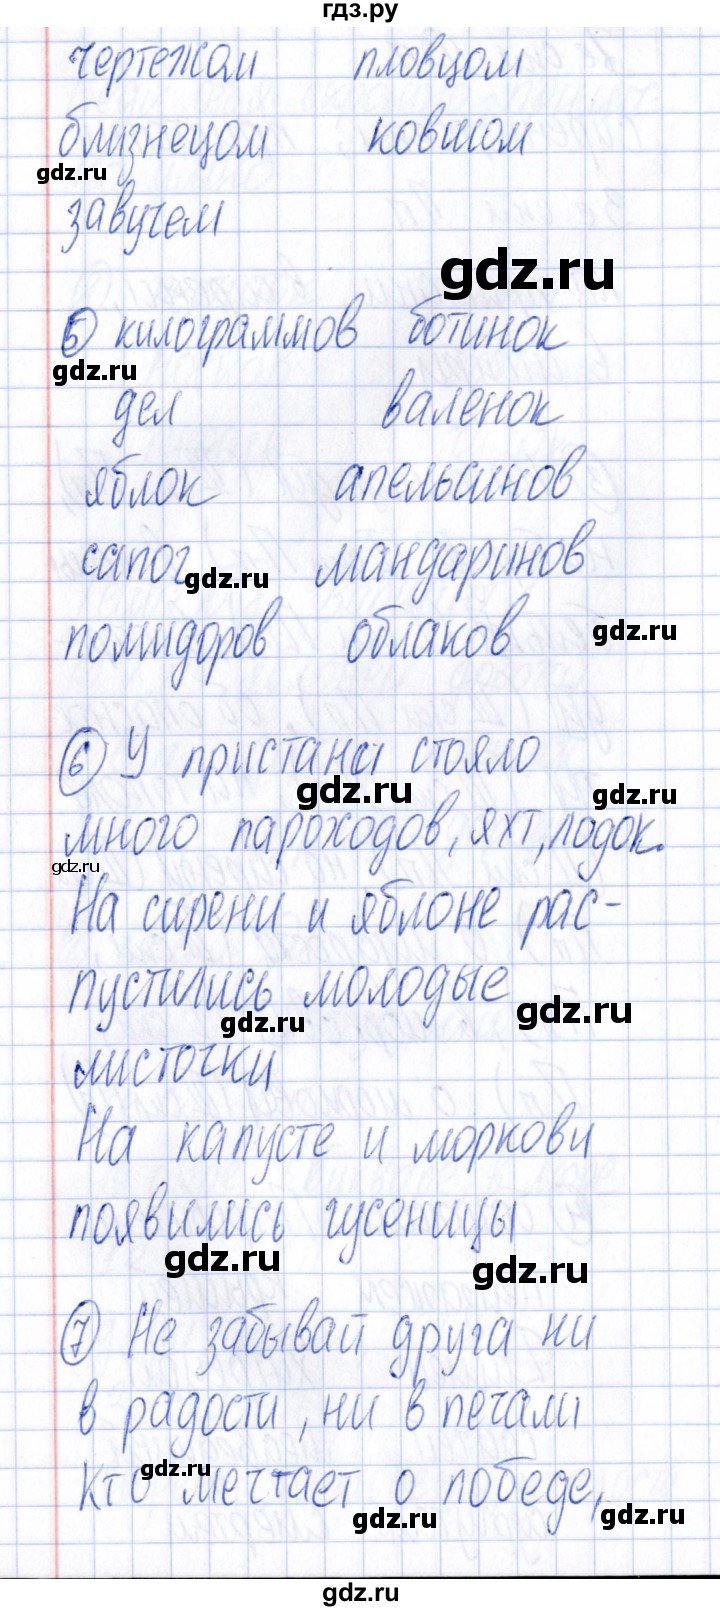 гдз.ру
чертежом пловцом
близнецом ковшом
gdz.ru
завучем
gdz.ru
5 килограммов ботинок
gdz.ru
дел валенок
яблок апельсинов
сапог мандаринов
gdz.ru
помидоров облаков
gdz.ru
6 У пристани стояло
gdz.ru
gdz.ru
много пароходов, яхт, лодок.
gdz.ru
На сирени и яблоне рас-
пустились молодые
gdz.ru
gdz.ru
листочки
На капусте и моркови
появились гусеницы
gdz.ru
gdz.ru
7 Не забывай друга ни
в радости, ни в печали
gdz.ru
Кто мечтает о победе,
gdz.ru
gdz.ru
gdz.ru